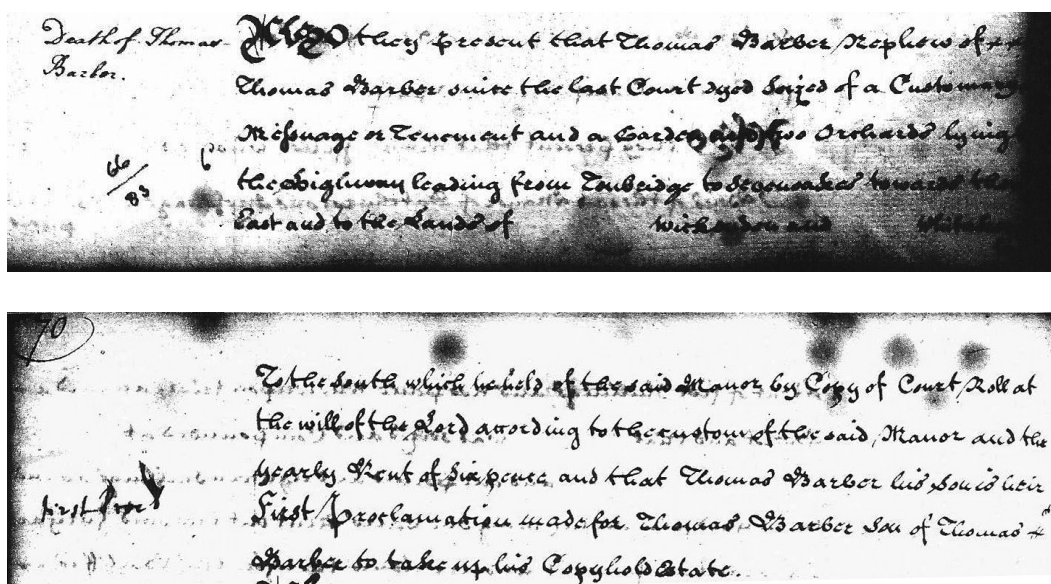 Death of Thomas
Barber.
Also they present that Thomas Barber Nephew of
Thomas Barber since the last Court dyed Seized of a Customary
Messuage or Tenement and a Garden and two Orchards lying
66/83
6
the Highway leading from Tonbridge to Sevenoakes towards the
East and to the Lands of and
70
To the South which he held of the said Manor by Copy of Court Roll at
the will of the Lord according to the custom of the said Manor and the
yearly Rent of Six pence and that Thomas Barber his Son is heir
first Procl
First Proclamation made for Thomas Barber Son of Thomas
Barber to take up his Copyhold Estate.